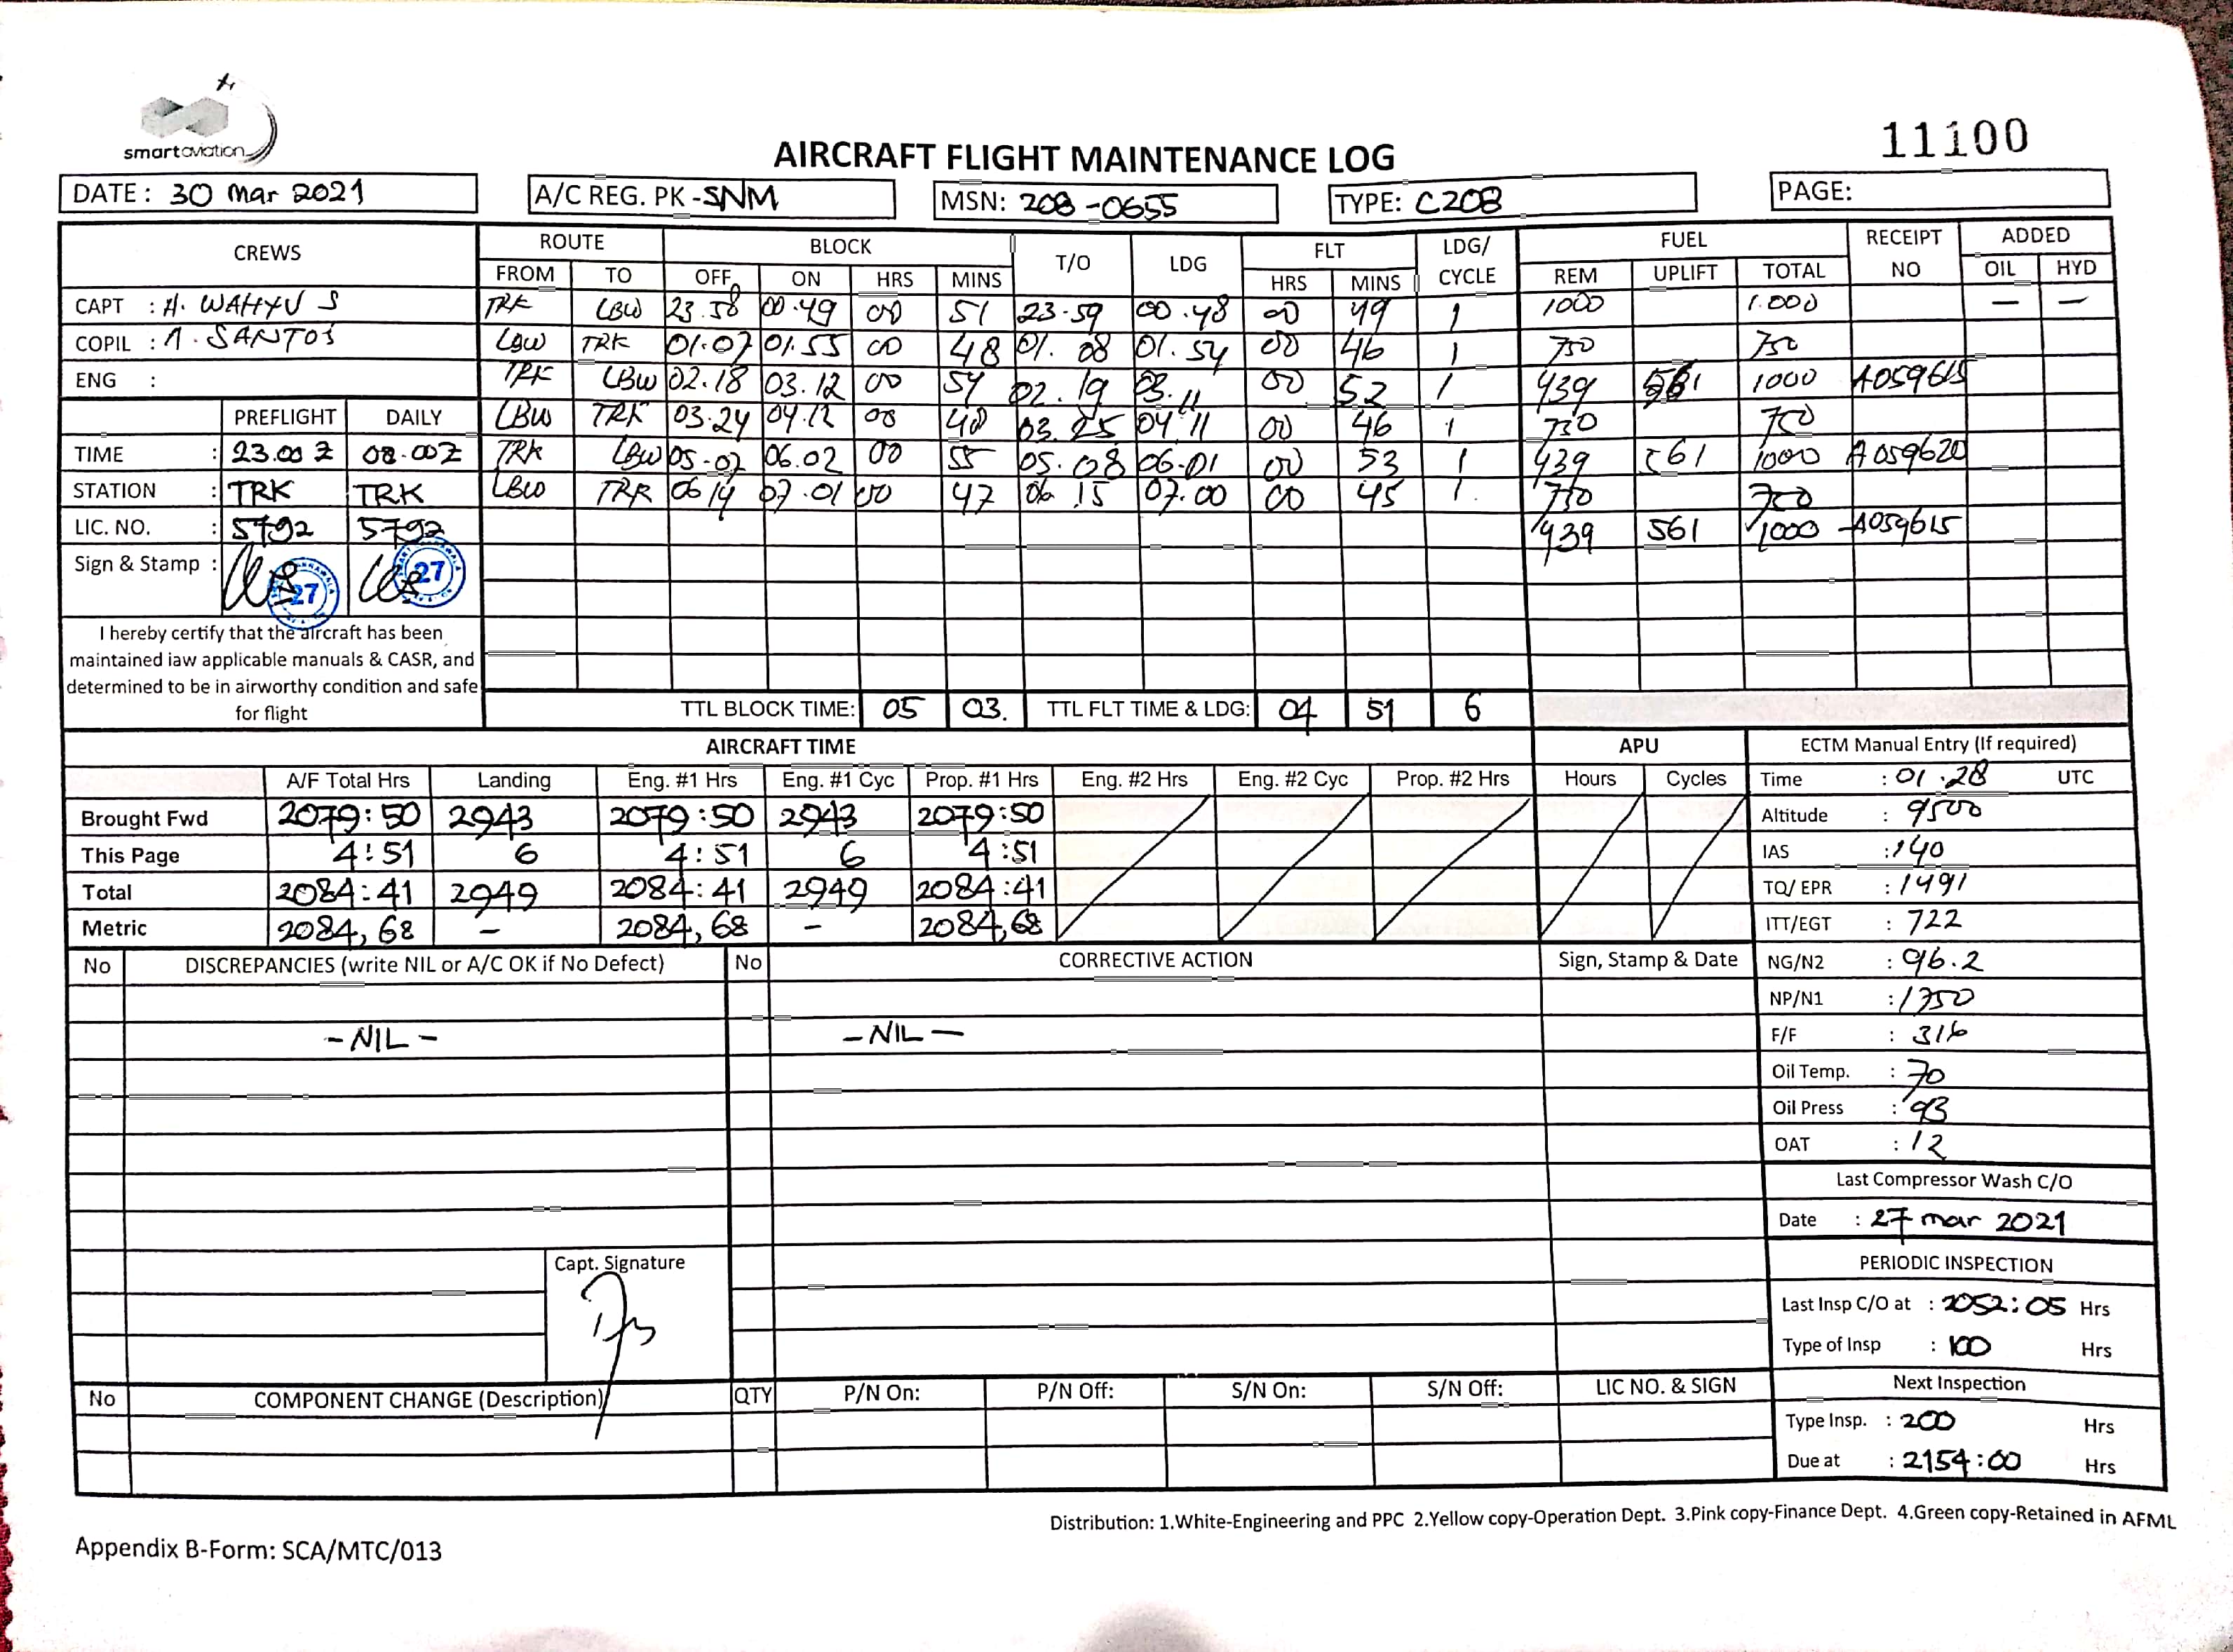 smartaviation
11100
AIRCRAFT FLIGHT MAINTENANCE LOG
DATE: 30 Mar 2021 A/C REG. PK-SNM MSN: 208-0655 TYPE: C208 PAGE:
CREWS ROUTE BLOCK T/O LDG FLT LDG/CYCLE FUEL RECEIPT NO ADDED
FROM TO OFF ON HRS MINS HRS MINS REM UPLIFT TOTAL OIL HYD
CAPT : A. WAHYU S TRK LBW 23.58 00.49 00 51 23.59 00.48 00 49 1 1000 1.000 — —
COPIL : A. SANTOS LBW TRK 01.07 01.55 00 48 01.08 01.54 00 46 1 750 750
ENG : TRK LBW 02.18 03.12 00 54 02.19 03.11 00 52 1 439 561 1000 A059615
PREFLIGHT DAILY LBW TRK 03.24 04.12 00 48 03.25 04.11 00 46 1 750 750
TIME : 23.00 Z 08.00Z TRK LBW 05.07 06.02 00 55 05.08 06.01 00 53 1 439 561 1000 A059620
STATION : TRK TRK LBW TRK 06 14 07.01 00 47 06.15 07.00 00 45 1. 750 750
LIC. NO. : 5792 5792 439 561 1000 A059615
Sign & Stamp : 27 27
I hereby certify that the aircraft has been
maintained iaw applicable manuals & CASR, and
determined to be in airworthy condition and safe
for flight
TTL BLOCK TIME: 05 03. TTL FLT TIME & LDG: 04 51 6
AIRCRAFT TIME APU ECTM Manual Entry (If required)
A/F Total Hrs Landing Eng. #1 Hrs Eng. #1 Cyc Prop. #1 Hrs Eng. #2 Hrs Eng. #2 Cyc Prop. #2 Hrs Hours Cycles Time : 01.28 UTC
Brought Fwd 2079:50 2943 2079:50 2943 2079:50 Altitude : 9500
This Page 4:51 6 4:51 6 4:51 IAS : 140
Total 2084:41 2949 2084:41 2949 2084:41 TQ/ EPR : 1491
Metric 2084,68 - 2084,68 - 2084,68 ITT/EGT : 722
No DISCREPANCIES (write NIL or A/C OK if No Defect) No CORRECTIVE ACTION Sign, Stamp & Date NG/N2 : 96.2
NP/N1 : 1750
- NIL - - NIL — F/F : 316
Oil Temp. : 70
Oil Press : 93
OAT : 12
Last Compressor Wash C/O
Date : 27 mar 2021
Capt. Signature PERIODIC INSPECTION
Last Insp C/O at : 2052:05 Hrs
Type of Insp : 100 Hrs
No COMPONENT CHANGE (Description) QTY P/N On: P/N Off: S/N On: S/N Off: LIC NO. & SIGN Next Inspection
Type Insp. : 200 Hrs
Due at : 2154:00 Hrs
Distribution: 1.White-Engineering and PPC 2.Yellow copy-Operation Dept. 3.Pink copy-Finance Dept. 4.Green copy-Retained in AFML
Appendix B-Form: SCA/MTC/013